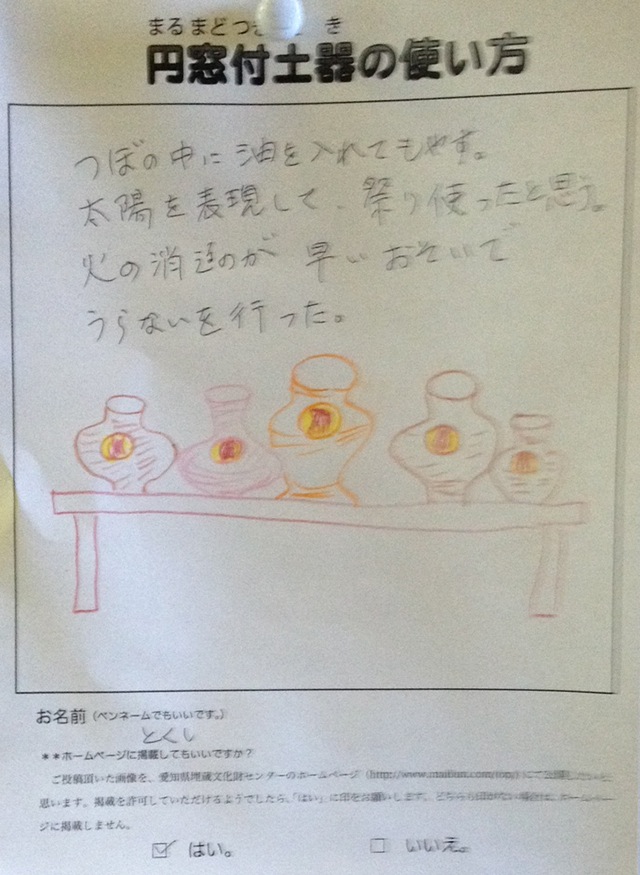 まるまどつき き
円窓付土器の使い方
つぼの中に油を入れてもやす。
太陽を表現して、祭り使ったと思う。
火の消えるのが 早い おそいで
うらないを行った。
お名前（ペンネームでもいいです。）
とくし
＊＊ホームページに掲載してもいいですか？
ご投稿頂いた画像を、愛知県埋蔵文化財センターのホームページ（http://www.maibun.com/top/）にて公開したいと
思います。掲載を許可していただけるようでしたら、「はい」に印をお願いします。どちらも印がない場合は、ホームペー
ジに掲載しません。
☑ はい。 □ いいえ。